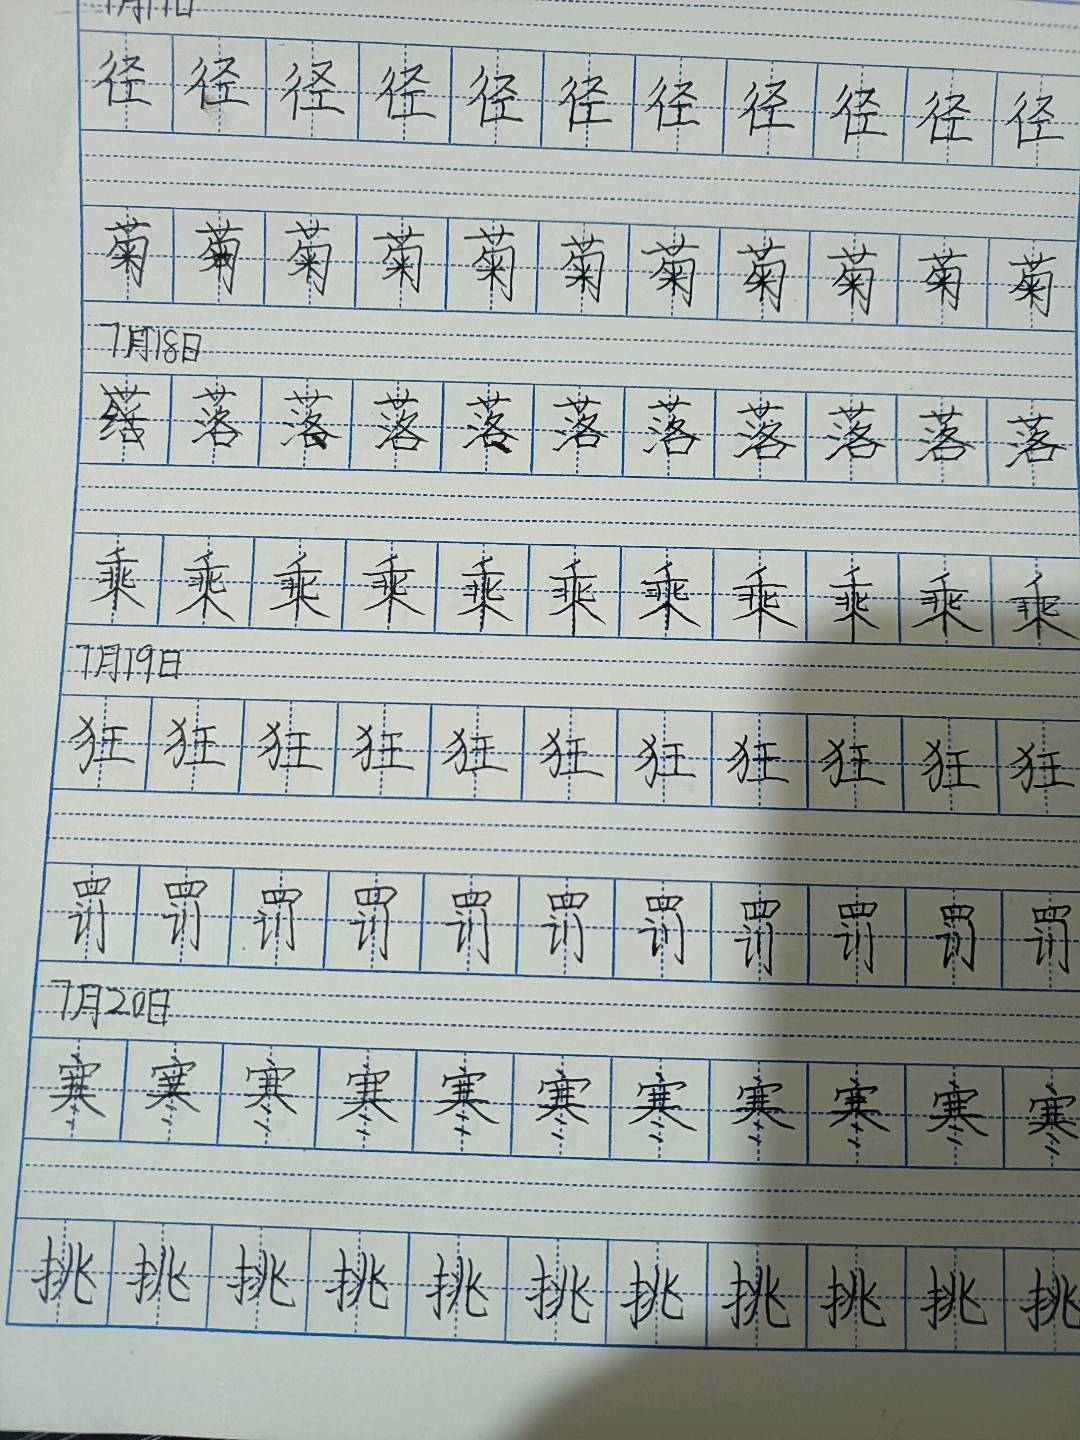 7月17日
径径径径径径径径径径径
菊菊菊菊菊菊菊菊菊菊菊
7月18日
落落落落落落落落落落
乘乘乘乘乘乘乘乘乘乘乘
7月19日
狂狂狂狂狂狂狂狂狂狂狂
罚罚罚罚罚罚罚罚罚罚罚
7月20日
寒寒寒寒寒寒寒寒寒寒寒
挑挑挑挑挑挑挑挑挑挑挑